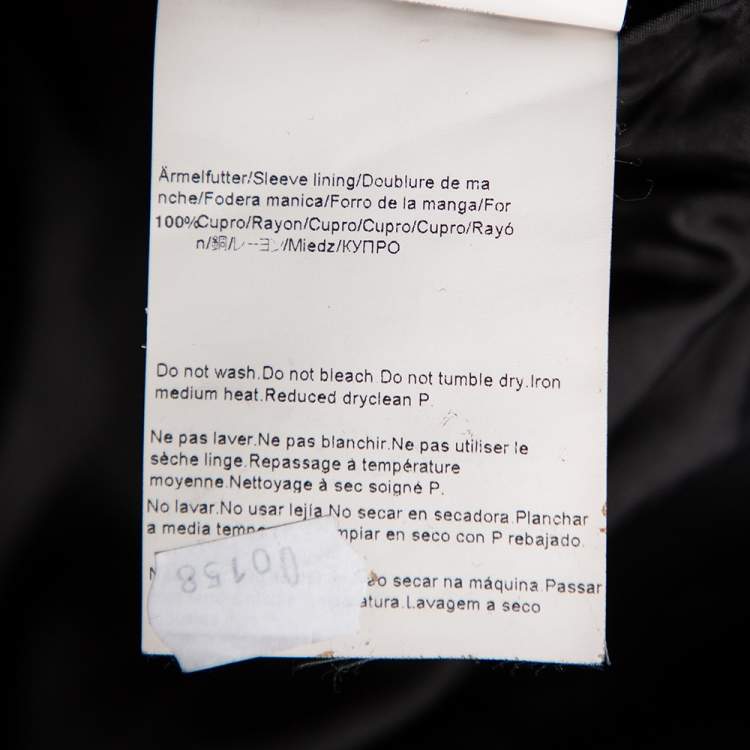 Ärmelfutter/Sleeve lining/Doublure de ma
nche/Fodera manica/Forro de la manga/For
100%Cupro/Rayon/Cupro/Cupro/Cupro/Rayó
n/銅/レーヨン/Miedz/КУПРО
Do not wash.Do not bleach.Do not tumble dry.Iron
medium heat.Reduced dryclean P.
Ne pas laver.Ne pas blanchir.Ne pas utiliser le
sèche linge.Repassage à température
moyenne.Nettoyage à sec soigné P.
No lavar.No usar lejía.No secar en secadora.Planchar
a media en seco con P rebajado.
secar na máquina.Passar
Lavagem a seco
00158